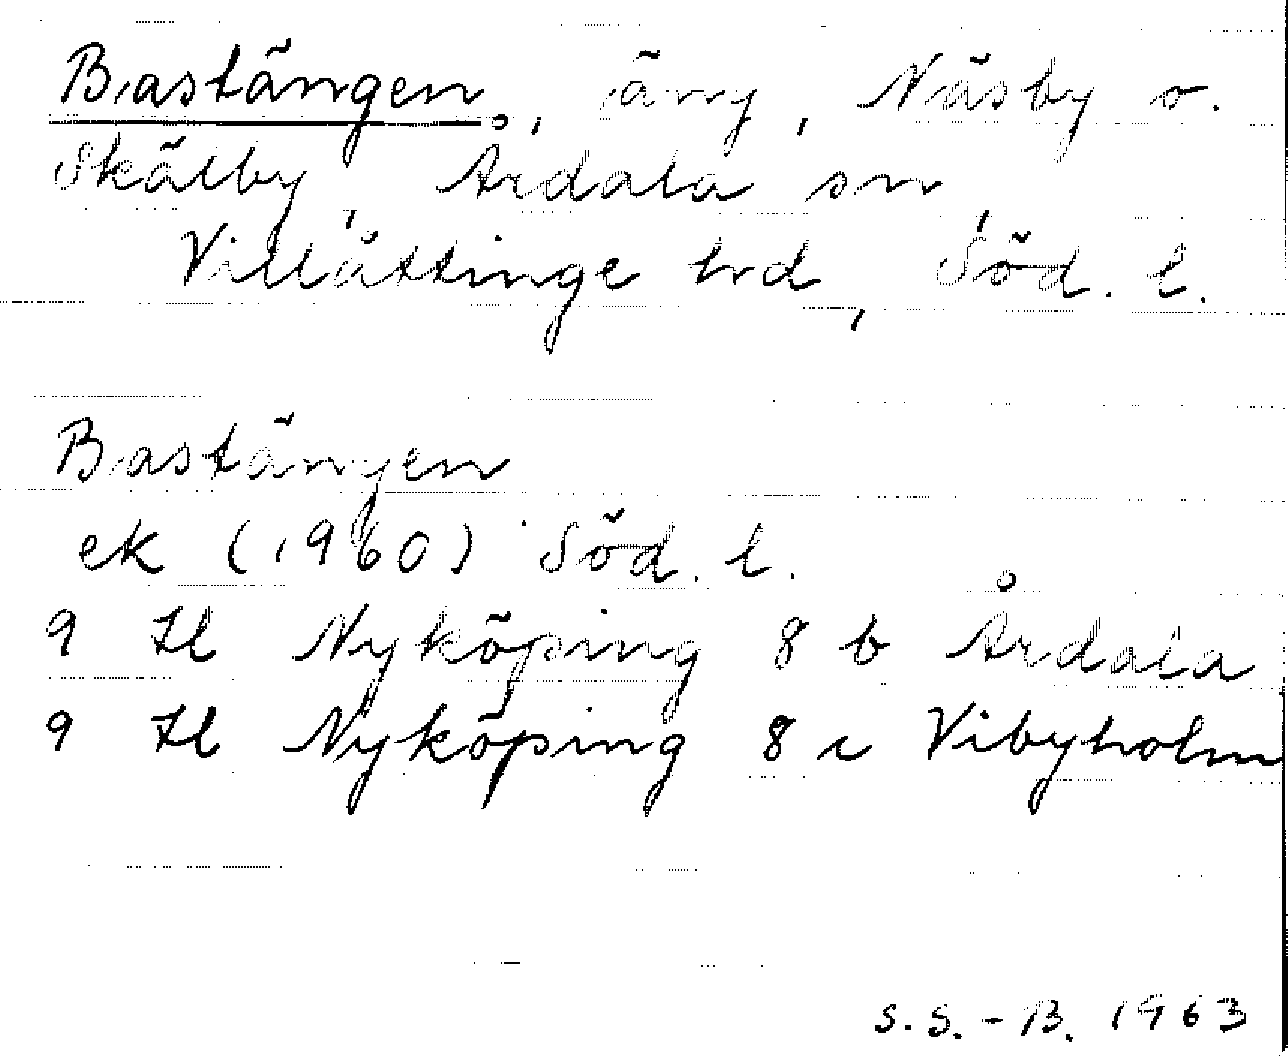 Bastängen, äng, Näsby o.
Skälby, Årdala sn,
Villåttinge hrd, Söd. l.
Bastängen
ek (1960) Söd. l.
9 H Nyköping 8 b Årdala
9 H Nyköping 8 c Vibyholm
S. S.-B. 1963